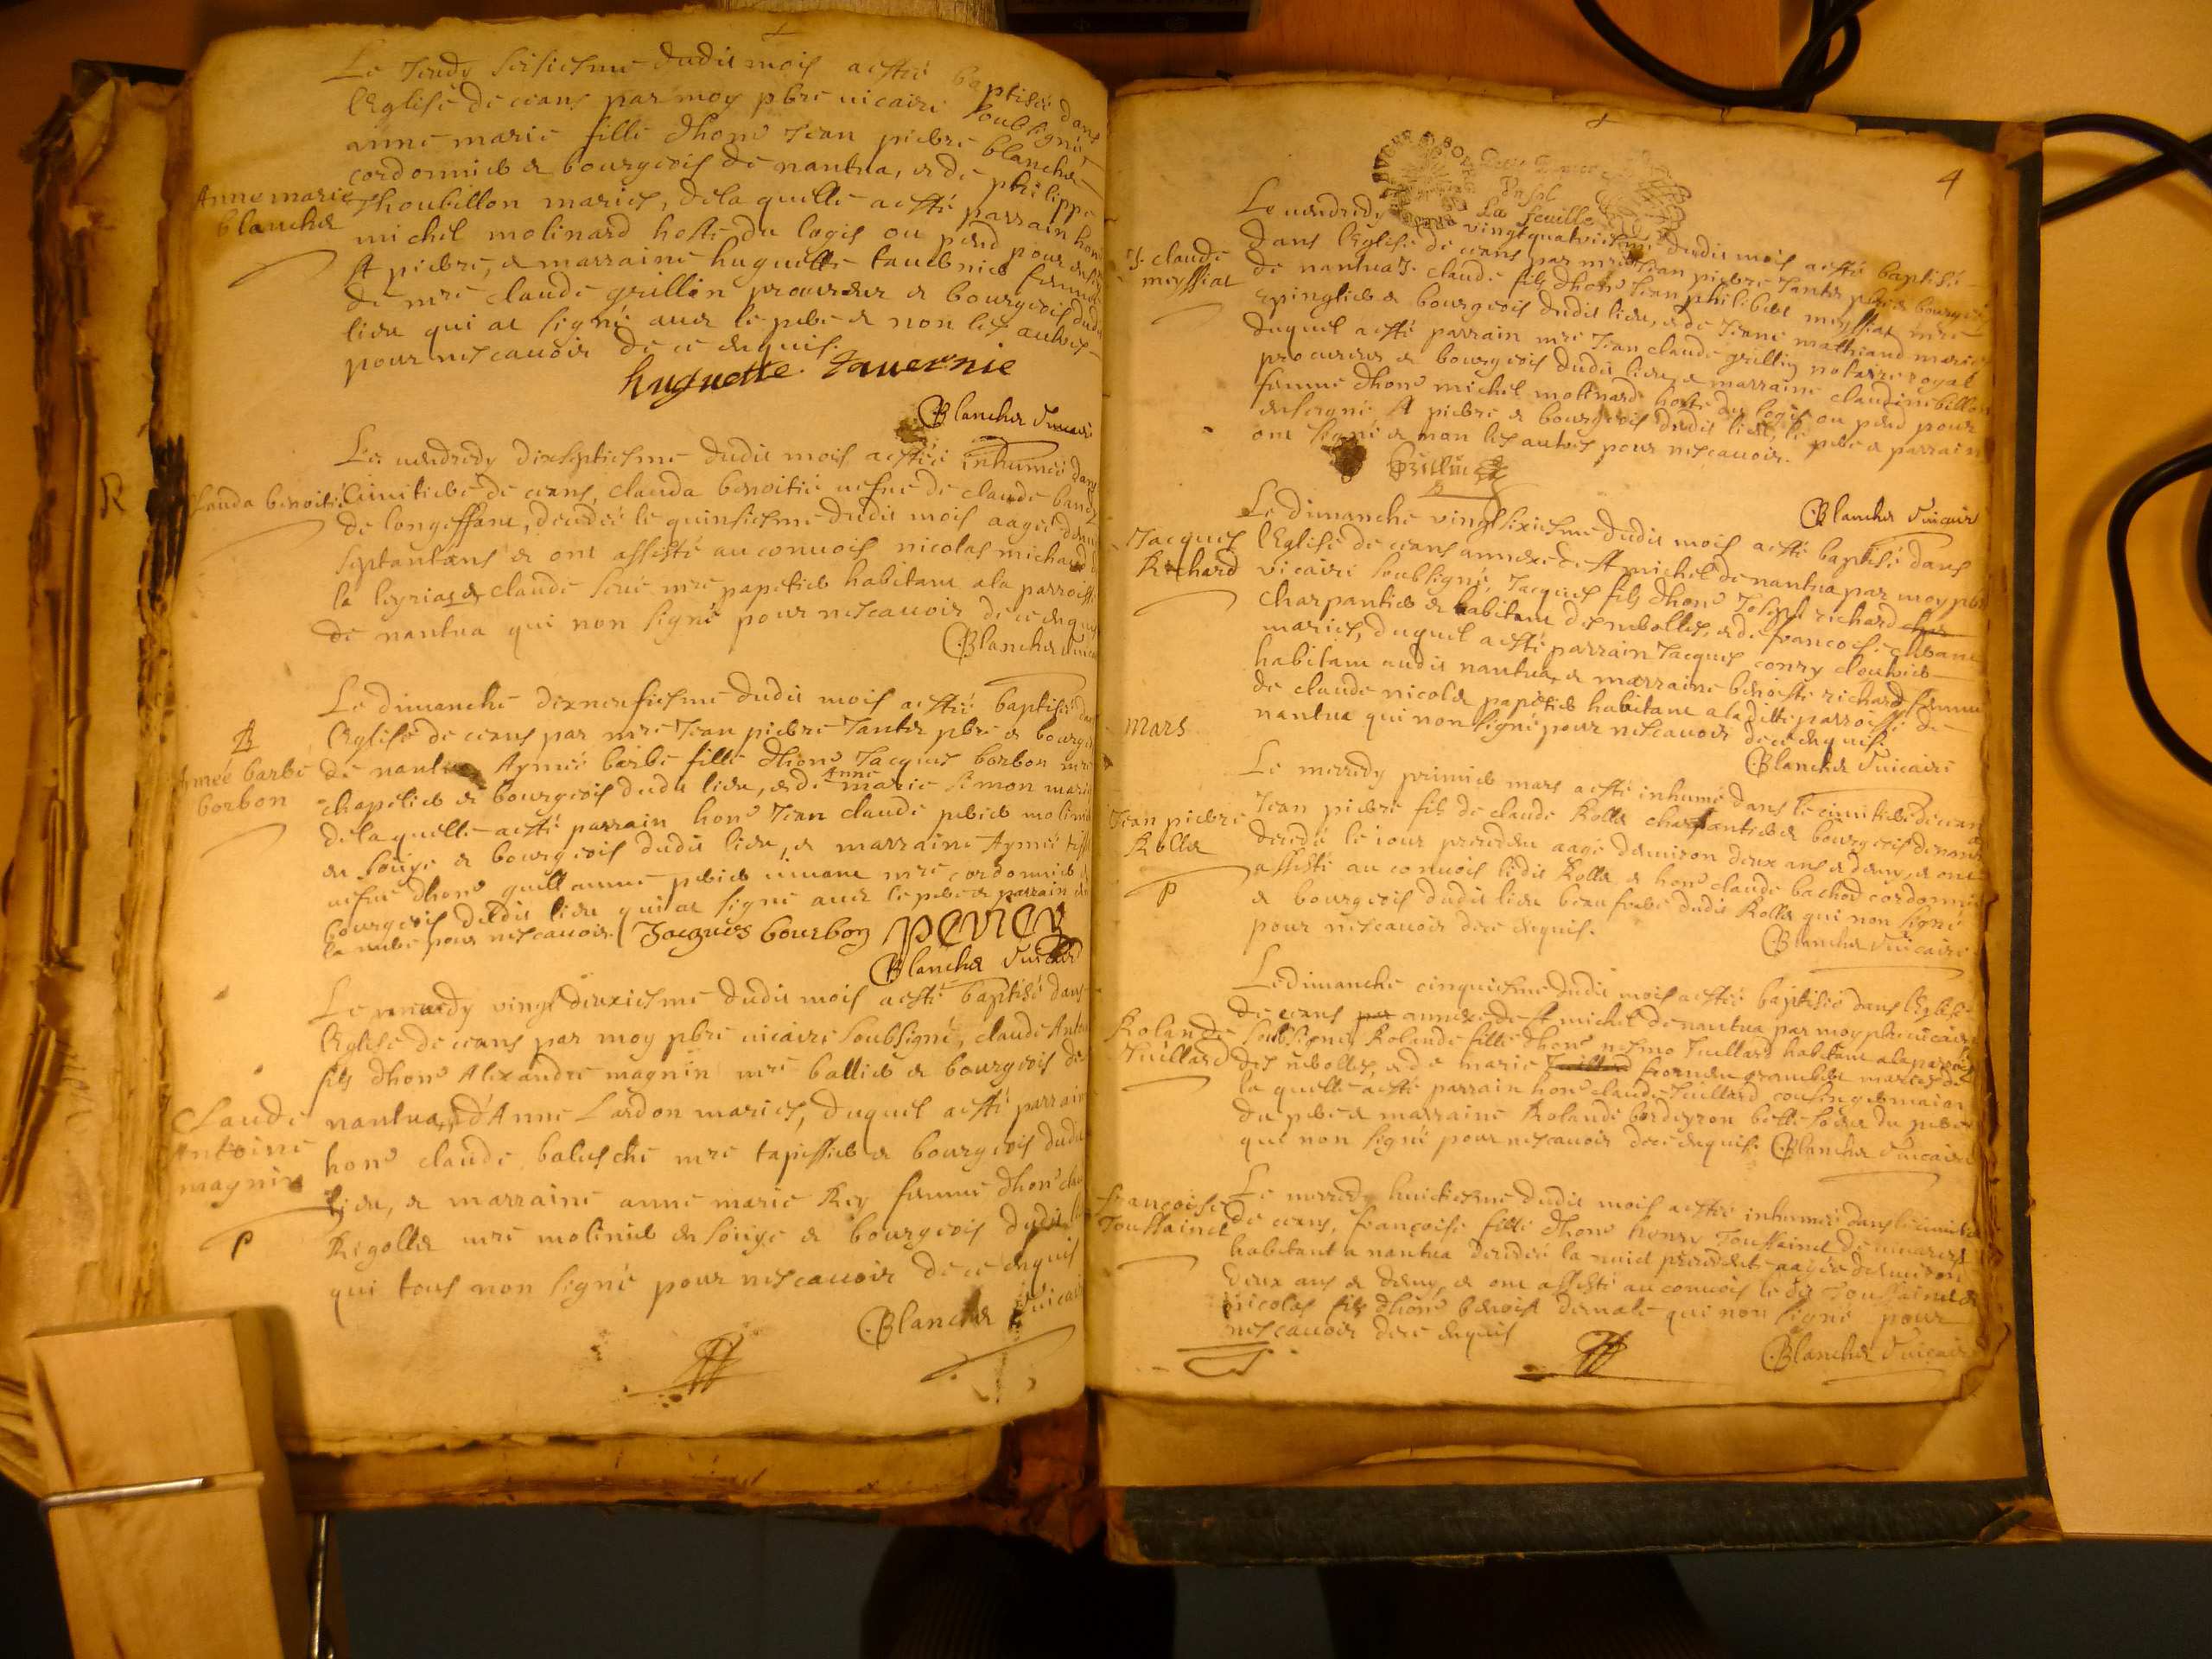 Le Jeudy seiziesme dudit mois a esté baptisée dans
l'Eglise de ceans par moy pbre vicaire soubsigné
anne marie fille d'hon Jean pierre blanchet
cordonnier et bourgeois de nantua, et de philippe
Anne marie blanchet
houbillon mariés, de la quelle a esté parrain hon
michel molinard hoste du logis ou pend pour enseigne
St pierre, et marraine huguette tavernier femme
de mre claude grillin procureur et bourgeois dudit
lieu qui at signé avec le pere et non les autres
pour ne scavoir de ce enquis.
huguette tavernie
Blanchet vicaire
Le vendredy dixseptiesme dudit mois a esté inhumée dans
Clauda benoitié
le cimitiere de ceans, clauda benoitié vefve de claude
de longeffant, decedée le quinsiesme dudit mois aagée
septantans et ont assisté au convois nicolas michard
la leyriat et claude mre papetier habitant a la parroisse
de nantua qui non signé pour ne scavoir de ce enquis
Blanchet vicaire
Le dimanche dixneufiesme dudit mois a esté baptisée dans
l'Eglise de ceans par mre Jean pierre Jantet pbre et bourgeois
Aymée barbe borbon
de nantua Aymée barbe fille d'hon Jacques borbon mre
chapelier et bourgeois dudit lieu, et de Anne marie simon mariés
de la quelle a esté parrain hon Jean claude molinier
en soüye et bourgeois dudit lieu, et marraine Aymée
vefve d'hon guillaume vivant mre cordonnier
bourgeois dudit lieu qui at signé avec le pere et parrain
pour ne scavoir. Jacques bourbon
Blanchet vicaire
Le mercredy vingt deuxiesme dudit mois a esté baptisé dans
l'Eglise de ceans par moy pbre vicaire soubsigné, claude Antoine
fils d'hon Alexandre magnin mre ballier et bourgeois de
Claude Antoine magnin
nantua, et d'Anne Lardon mariés, duquel a esté parrain
hon claude baleschi mre tapissier et bourgeois dudit
lieu, et marraine anne marie Rey femme d'hon
Regollet mre molinier en soüye et bourgeois dudit lieu
P
qui tous non signé pour ne scavoir de ce enquis
Blanchet vicaire
4
La feuille
Le vendredy vingt quatriesme dudit mois a esté baptisé
dans l'Eglise de ceans par mre Jean pierre Jantet pbre et bourgeois
J. claude meyssiat
de nantua J. claude fils d'hon Jean philibert meyssiat mre
epinglier et bourgeois dudit lieu, et de Jeane mathiand mariés
duquel a esté parrain mre Jean claude grillin notaire royal
procureur et bourgeois dudit lieu, et marraine claudine billon
femme d'hon michel molinard hoste du logis ou pend pour
enseigne St pierre et bourgeois dudit lieu, le pere et parrain
ont signé et non les autres pour ne scavoir.
Grillin
Blanchet vicaire
Le dimanche vingt sixiesme dudit mois a esté baptisé dans
Jacques Richard
l'Eglise de ceans annexe de St michel de nantua par moy pbre
vicaire soubsigné, Jacques fils d'hon Joseph richard
charpantier et habitant des nebolles, et de francoise
mariés, duquel a esté parrain Jacques conry cloutrier
habitant audit nantua, et marraine benoiste richard femme
de claude nicolet papetier habitant a laditte parroisse de
nantua qui non signé pour ne scavoir de ce enquis.
Blanchet vicaire
Mars
Le mercredy premier mars a esté inhumé dans le cimitiere de ceans
Jean pierre Rollet
P
Jean pierre fils de claude Rollet charpantier et bourgeois de nantua
decedé le jour precedent aagé d'environ deux ans et demy, et ont
assisté au convois ledit Rollet et hon claude bachod cordonnier
et bourgeois dudit lieu beau frere dudit Rollet qui non signé
pour ne scavoir de ce enquis.
Blanchet vicaire
Le dimanche cinquiesme dudit mois a esté baptisée dans l'Eglise
de ceans par annexe de St michel de nantua par moy pbre vicaire
Rolande Juillard
soubsigné Rolande fille d'hon Juillard habitant a la parroisse
des nebolles, et de marie mariés de
la quelle a esté parrain hon claude Juillard cousin germain
du pere et marraine Rolande borderon belle soeur du pere
qui non signé pour ne scavoir de ce enquis. Blanchet vicaire
Le mercredy huictiesme dudit mois a esté inhumée dans le cimitiere
francoise Toussainct
de ceans, françoise fille d'hon henry Toussainct
habitant a nantua decedée la nuict precedente aagée d'environ
deux ans et demy, et ont assisté au convois le dit Toussainct et
nicolas fils d'hon benoist qui non signé pour
ne scavoir de ce enquis
Blanchet vicaire